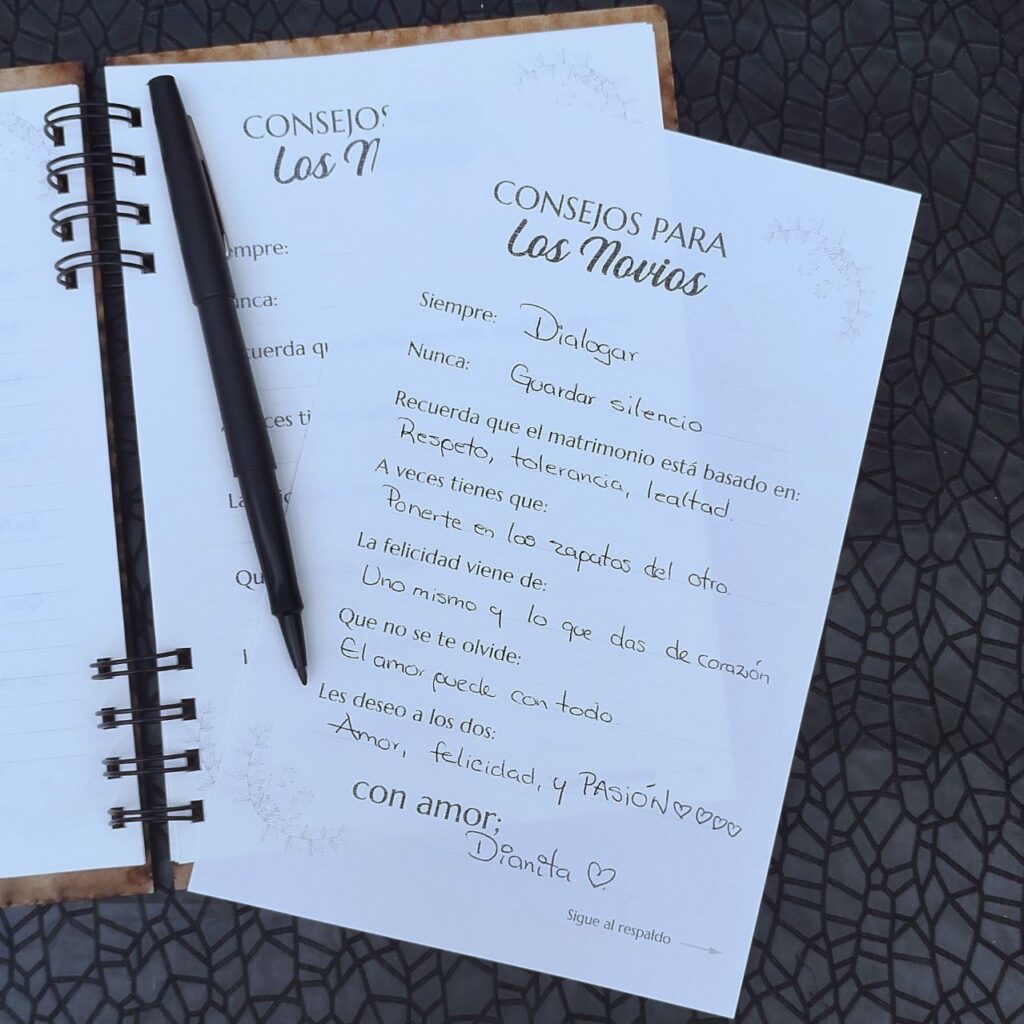 CONSEJOS
Los N
empre:
unca:
cuerda qu
A veces ti
La
Qu
CONSEJOS PARA
Los Novios
Siempre: Dialogar
Nunca: Guardar silencio
Recuerda que el matrimonio está basado en:
Respeto, tolerancia, lealtad.
A veces tienes que:
Ponerte en los zapatos del otro.
La felicidad viene de:
Uno mismo y lo que das de corazón
Que no se te olvide:
El amor puede con todo.
Les deseo a los dos:
Amor, felicidad, y PASIÓN♡♡♡♡
con amor;
Dianita ♡
Sigue al respaldo